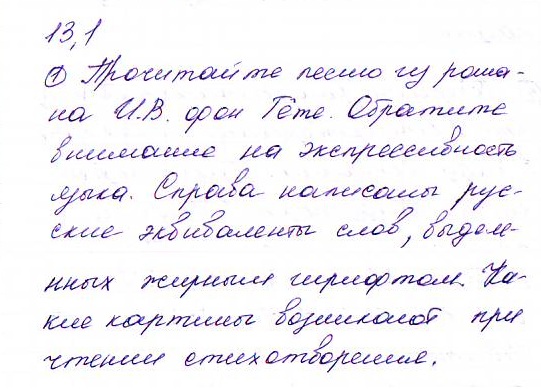 13,1
① Прочитайте песню из рома-
на И.В. фон Гёте. Обратите
внимание на экспрессивность
языка. Справа написаны рус-
ские эквиваленты слов, выдел-
нных жирным шрифтом. Ка-
кие картины возникают при
чтении стихотворения.